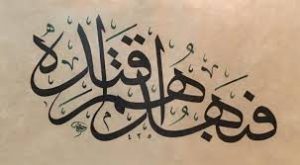 فبهداهم اقتده